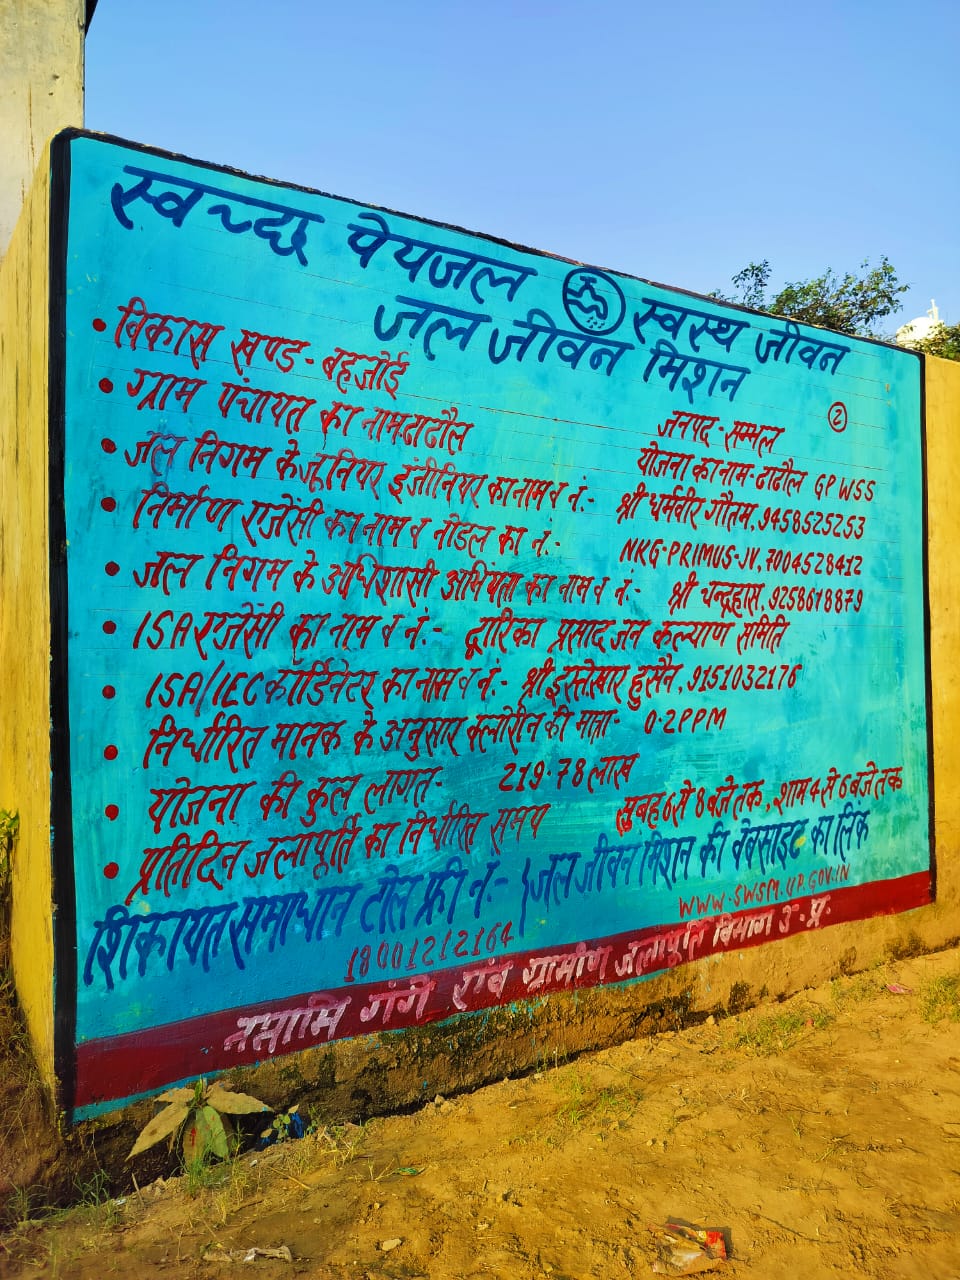 स्वच्छ पेयजल स्वस्थ जीवन
जल जीवन मिशन
2
• विकास खण्ड - बहजोई जनपद - सम्भल
• ग्राम पंचायत का नाम-ढाढौल योजना का नाम - ढाढौल GPWSS
• जल निगम के जूनियर इंजीनियर का नाम व नं. :- श्री धर्मवीर गौतम, 9458525253
• निर्माण एजेंसी का नाम व नोडल का नं. :- NKG-PRIMUS-JV, 7004528412
• जल निगम के अधिशासी अभियंता का नाम व नं. :- श्री चन्द्रहास, 9258618879
• ISA एजेंसी का नाम व नं. :- द्वारिका प्रसाद जन कल्याण समिति
• ISA/IEC कॉर्डिनेटर का नाम व नं. :- श्री इस्तेखार हुसैन, 9151032176
• निर्धारित मानक के अनुसार क्लोरीन की मात्रा - 0.2 PPM
• योजना की कुल लागत - 219.78 लाख
• प्रतिदिन जलापूर्ति का निर्धारित समय सुबह 6 से 8 बजे तक, शाम 4 से 6 बजे तक
शिकायत समाधान टोल फ्री नं. :- / जल जीवन मिशन की वेबसाइट का लिंक
18001212164 WWW.SWSM.UP.GOV.IN
नमामि गंगे एंव ग्रामीण जलापूर्ति विभाग उ. प्र.